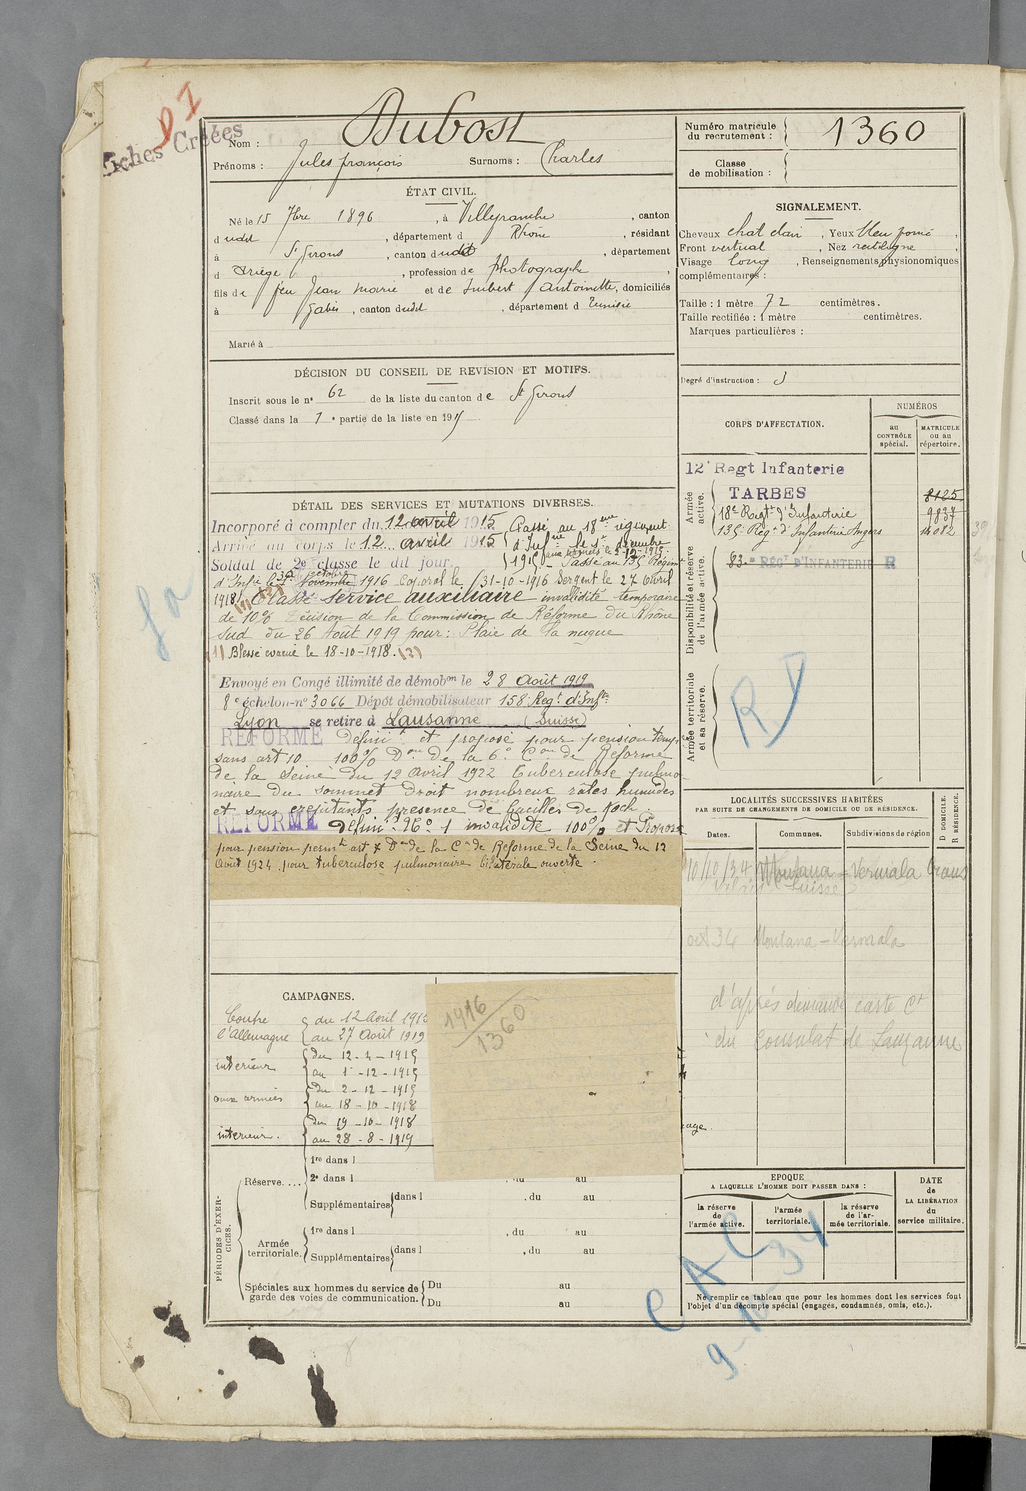 DI
Fiches Créées
Nom : Dubost
Prénoms : Jules françois Surnoms : Charles
Numéro matricule du recrutement : 1360
Classe de mobilisation :
ÉTAT CIVIL.
Né le 15 7bre 1896, à Villefranche, canton
dudit, département d Rhône, résidant
à St Girons, canton dudit, département
d Ariège, profession de photographe,
fils de feu Jean Marie et de Imbert Antoinette, domiciliés
à Gabès, canton dudit, département d Tunisie
Marié à
SIGNALEMENT.
Cheveux chat clair, Yeux bleu foncé,
Front vertical, Nez rectiligne,
Visage long, Renseignements physionomiques
complémentaires :
Taille : 1 mètre 72 centimètres.
Taille rectifiée : 1 mètre centimètres.
Marques particulières :
Degré d'instruction : 3
DÉCISION DU CONSEIL DE REVISION ET MOTIFS.
Inscrit sous le n° 62 de la liste du canton de St Girons
Classé dans la 1e partie de la liste en 1915
CORPS D'AFFECTATION.
NUMÉROS
au CONTRÔLE spécial.
MATRICULE ou au répertoire.
Armée active.
12e Regt Infanterie
TARBES 8125
18e Regt d'Infanterie 9837
135 Regt d'Infanterie Angers 14082
Disponibilité et réserve de l'armée active.
83e RÉGt D'INFANTERIE R
Armée territoriale et sa réserve.
RD
DÉTAIL DES SERVICES ET MUTATIONS DIVERSES.
Incorporé à compter du 12 avril 1915 Passé au 18eme régiment
Arrivé au corps le 12 avril 1915 d'Infrie le 1er décembre
Soldat de 2e classe le dit jour. 1915 Passé au 135 Régiment
d'Infie le 1er Novembre 1916 Caporal le 31-10-1916 Sergent le 27 Avril
1918 Classé service auxiliaire invalidité temporaire
de 10% Décision de la Commission de Réforme du Rhône
Sud du 26 Août 1919 pour : Plaie de la nuque
(1) Blessé évacué le 18-10-1918. (2)
Envoyé en Congé illimité de démobon le 28 Août 1919
8e échelon-n° 3066 Dépôt démobilisateur 158 Regt d'Infie
Lyon se retire à Lausanne (Suisse)
RÉFORMÉ Définit et proposé pour pension temp
sans art 10 100% Don de la 6e Con de Réforme
de la Seine du 12 Avril 1922 Tuberculose pulmo-
naire du sommet droit nombreux râles humides
et sous crépitants présence de bacilles de Koch.
RÉFORMÉ Définit N° 1 invalidité 100% et Proposé
pour pension permte art 7 Don de la Con de Réforme de la Seine du 12
Août 1924 pour tuberculose pulmonaire bilatérale ouverte.
LOCALITÉS SUCCESSIVES HABITÉES
PAR SUITE DE CHANGEMENTS DE DOMICILE OU DE RÉSIDENCE.
Dates. Communes. Subdivisions de région
D DOMICILE.
R RÉSIDENCE.
10/10/34 Montana-Vermala Crans
Valais Suisse
oct 34 Montana-Vermala
d'après demande carte Ct
du Consulat de Lausanne
CAMPAGNES.
Contre l'Allemagne
du 12 Avril 1915
au 27 Août 1919
intérieur
du 12-4-1915
au 1-12-1915
aux armées
du 2-12-1915
au 18-10-1918
intérieur.
du 19-10-1918
au 28-8-1919
1916/1360
PÉRIODES D'EXERCICES.
Réserve....
1re dans l
2e dans l , du au
Supplémentaires dans l , du au
Armée territoriale.
1re dans l , du au
Supplémentaires dans l , du au
Spéciales aux hommes du service de garde des voies de communication.
Du au
Du au
EPOQUE
A LAQUELLE L'HOMME DOIT PASSER DANS :
la réserve de l'armée active.
l'armée territoriale.
la réserve de l'armée territoriale.
DATE de LA LIBÉRATION du service militaire.
CAC
9-10-34
Ne remplir ce tableau que pour les hommes dont les services font
l'objet d'un décompte spécial (engagés, condamnés, omis, etc.).